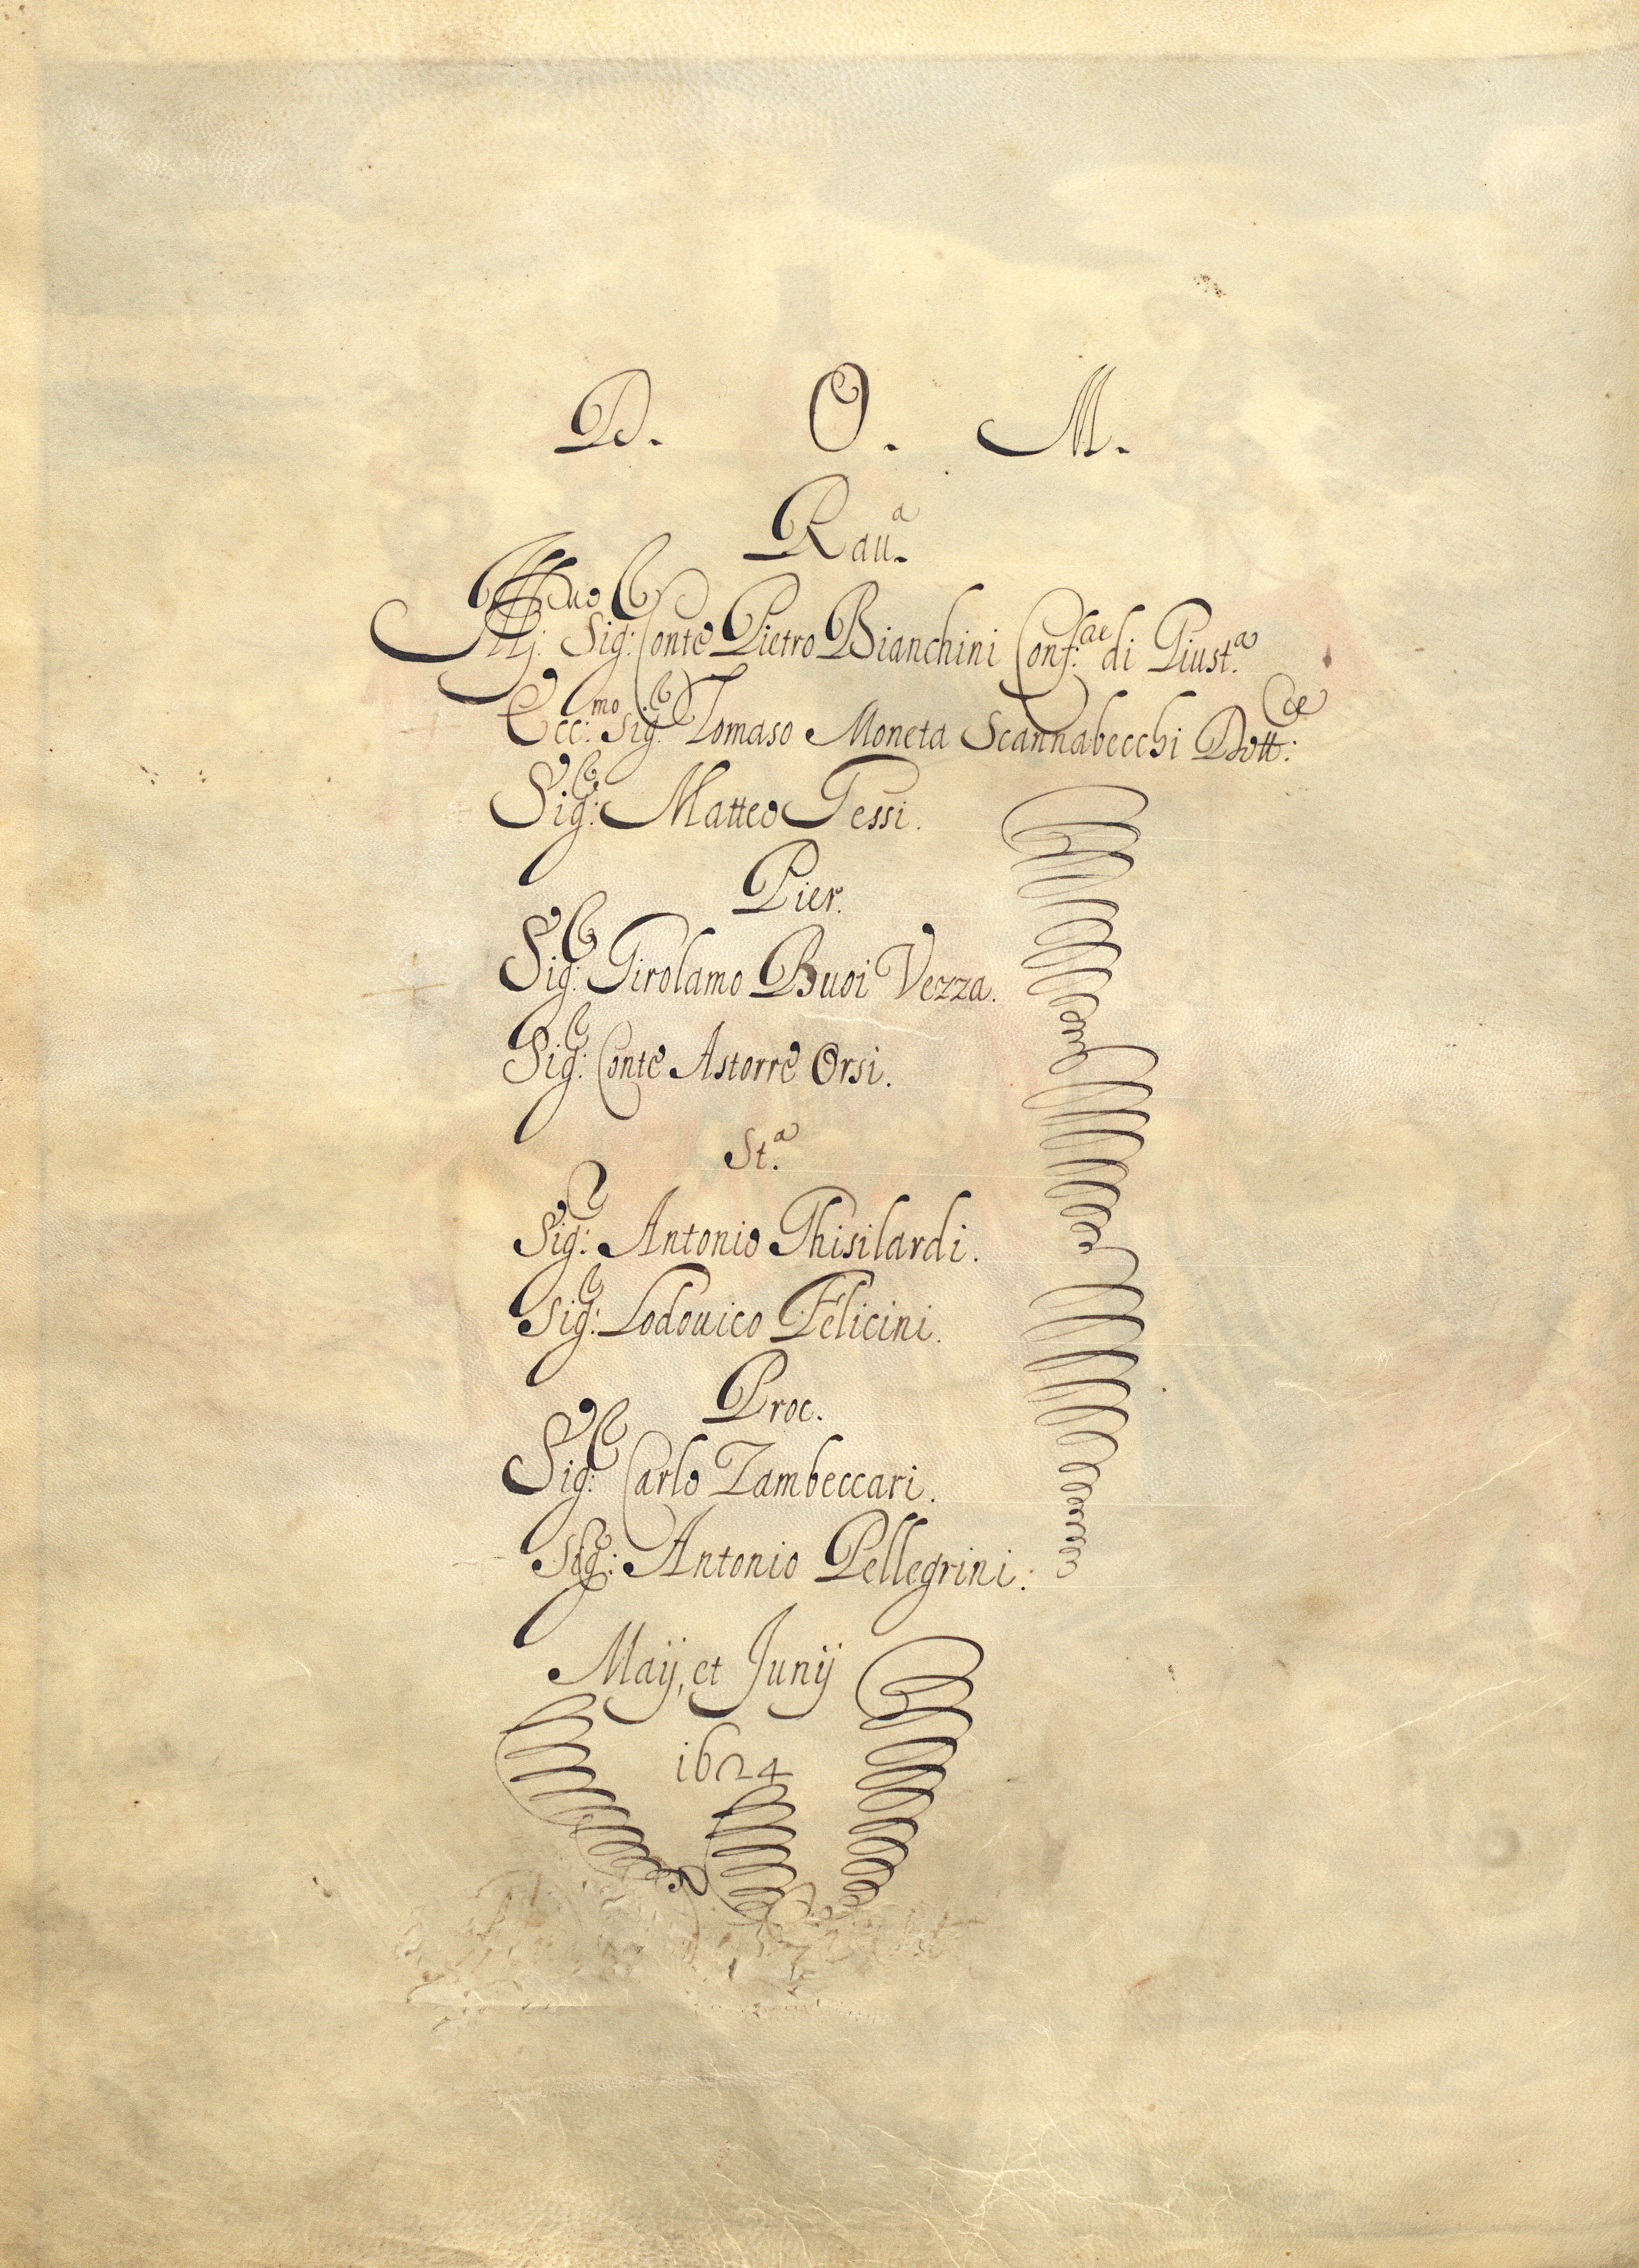 D. O. M.
Rau.ª
Ill.mo Sig: Conte Pietro Bianchini Conf.re di Giust.ª
Ecc:mo Sig.r Tomaso Moneta Scannabecchi Dott:re
Sig:r Matteo Gessi.
Pier.
Sig:r Girolamo Buoi Vezza.
Sig:r Conte Astorre Orsi.
St.ª
Sig:r Antonio Ghisilardi.
Sig:r Lodouico Felicini.
Proc.
Sig:r Carlo Zambeccari.
Sig:r Antonio Pellegrini.
Maij, et Junij
1624